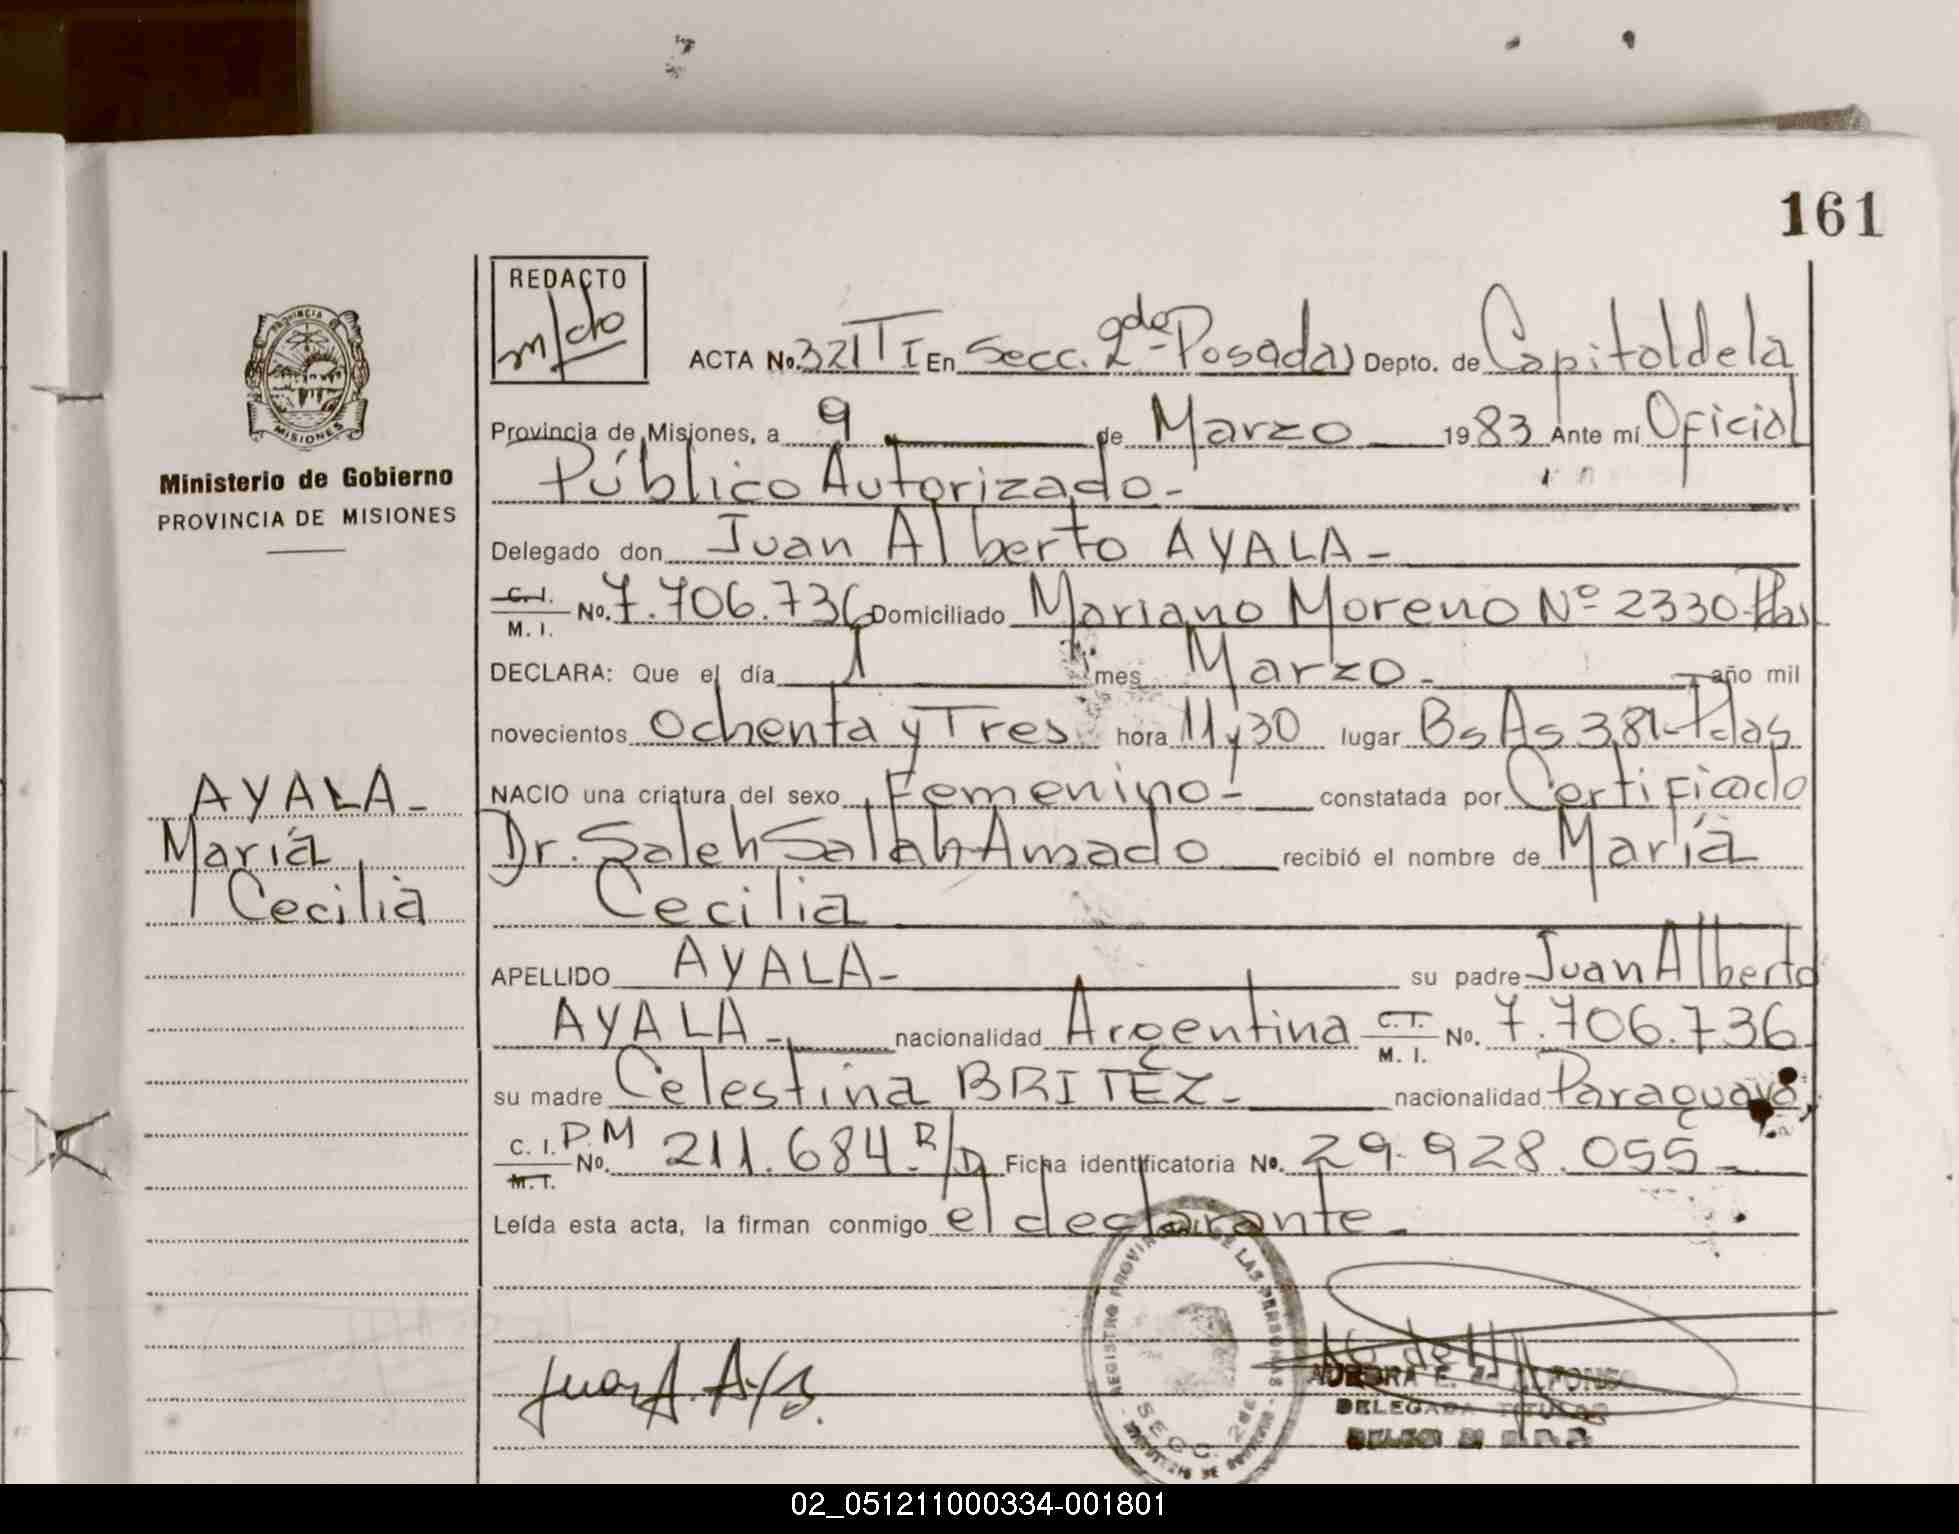 161
REDACTO
m/do
ACTA No. 321 T I En Secc. 2da - Posadas Depto. de Capital de la
PROVINCIA DE
MISIONES
Provincia de Misiones, a 9 de Marzo 1983 Ante mí Oficial
Ministerio de Gobierno
PROVINCIA DE MISIONES
Público Autorizado -
Delegado don Juan Alberto AYALA -
C. I.
M. I. No. 7.706.736 Domiciliado Mariano Moreno Nº 2330-Pdas
DECLARA: Que el día 1 mes Marzo - año mil
novecientos Ochenta y Tres hora 11 y 30 lugar Bs As 381-Pdas
AYALA -
María
Cecilia
NACIO una criatura del sexo Femenino - constatada por Certificado
Dr. Saleh Salah Amado recibió el nombre de María
Cecilia
APELLIDO AYALA - su padre Juan Alberto
AYALA - nacionalidad Argentina C. I.
M. I. No. 7.706.736
su madre Celestina BRITEZ - nacionalidad Paraguaya
C. I.
M. I. D.M No. 211.684 - R/D Ficha identificatoria No. 29.928.055 -
Leída esta acta, la firman conmigo el declarante -
REGISTRO PROVINCIAL DE LAS PERSONAS
SECC. 2da
MINISTERIO DE GOBIERNO
Juan A. Ay
AURORA E. ALFONSO
DELEGADA TITULAR
02_051211000334-001801